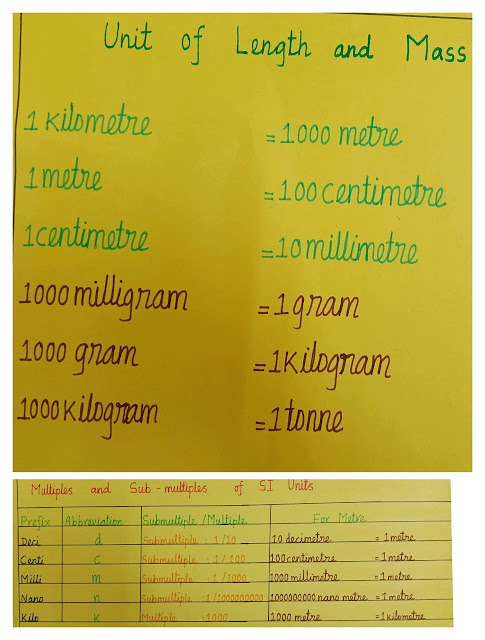 Unit of Length and Mass
1 Kilometre = 1000 metre
1 metre = 100 centimetre
1 centimetre = 10 millimetre
1000 milligram = 1 gram
1000 gram = 1 Kilogram
1000 Kilogram = 1 tonne
Multiples and Sub-multiples of SI Units
Prefix Abbreviation Submultiple /Multiple For Metre
Deci d Submultiple : 1/10 10 decimetre = 1 metre
Centi c Submultiple : 1/100 100 centimetre = 1 metre
Milli m Submultiple : 1/1000 1000 millimetre = 1 metre
Nano n Submultiple : 1/1000000000 1000000000 nano metre = 1 metre
Kilo K Multiple : 1000 1000 metre = 1 kilometre